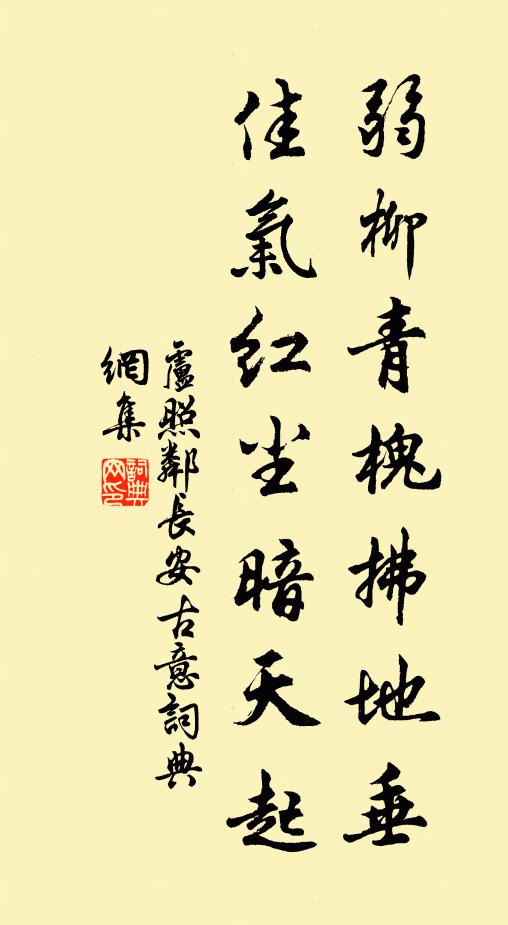 弱柳青槐拂地垂
佳氣红尘暗天起
盧照鄰長安古意詞典
網集
詞典
网印